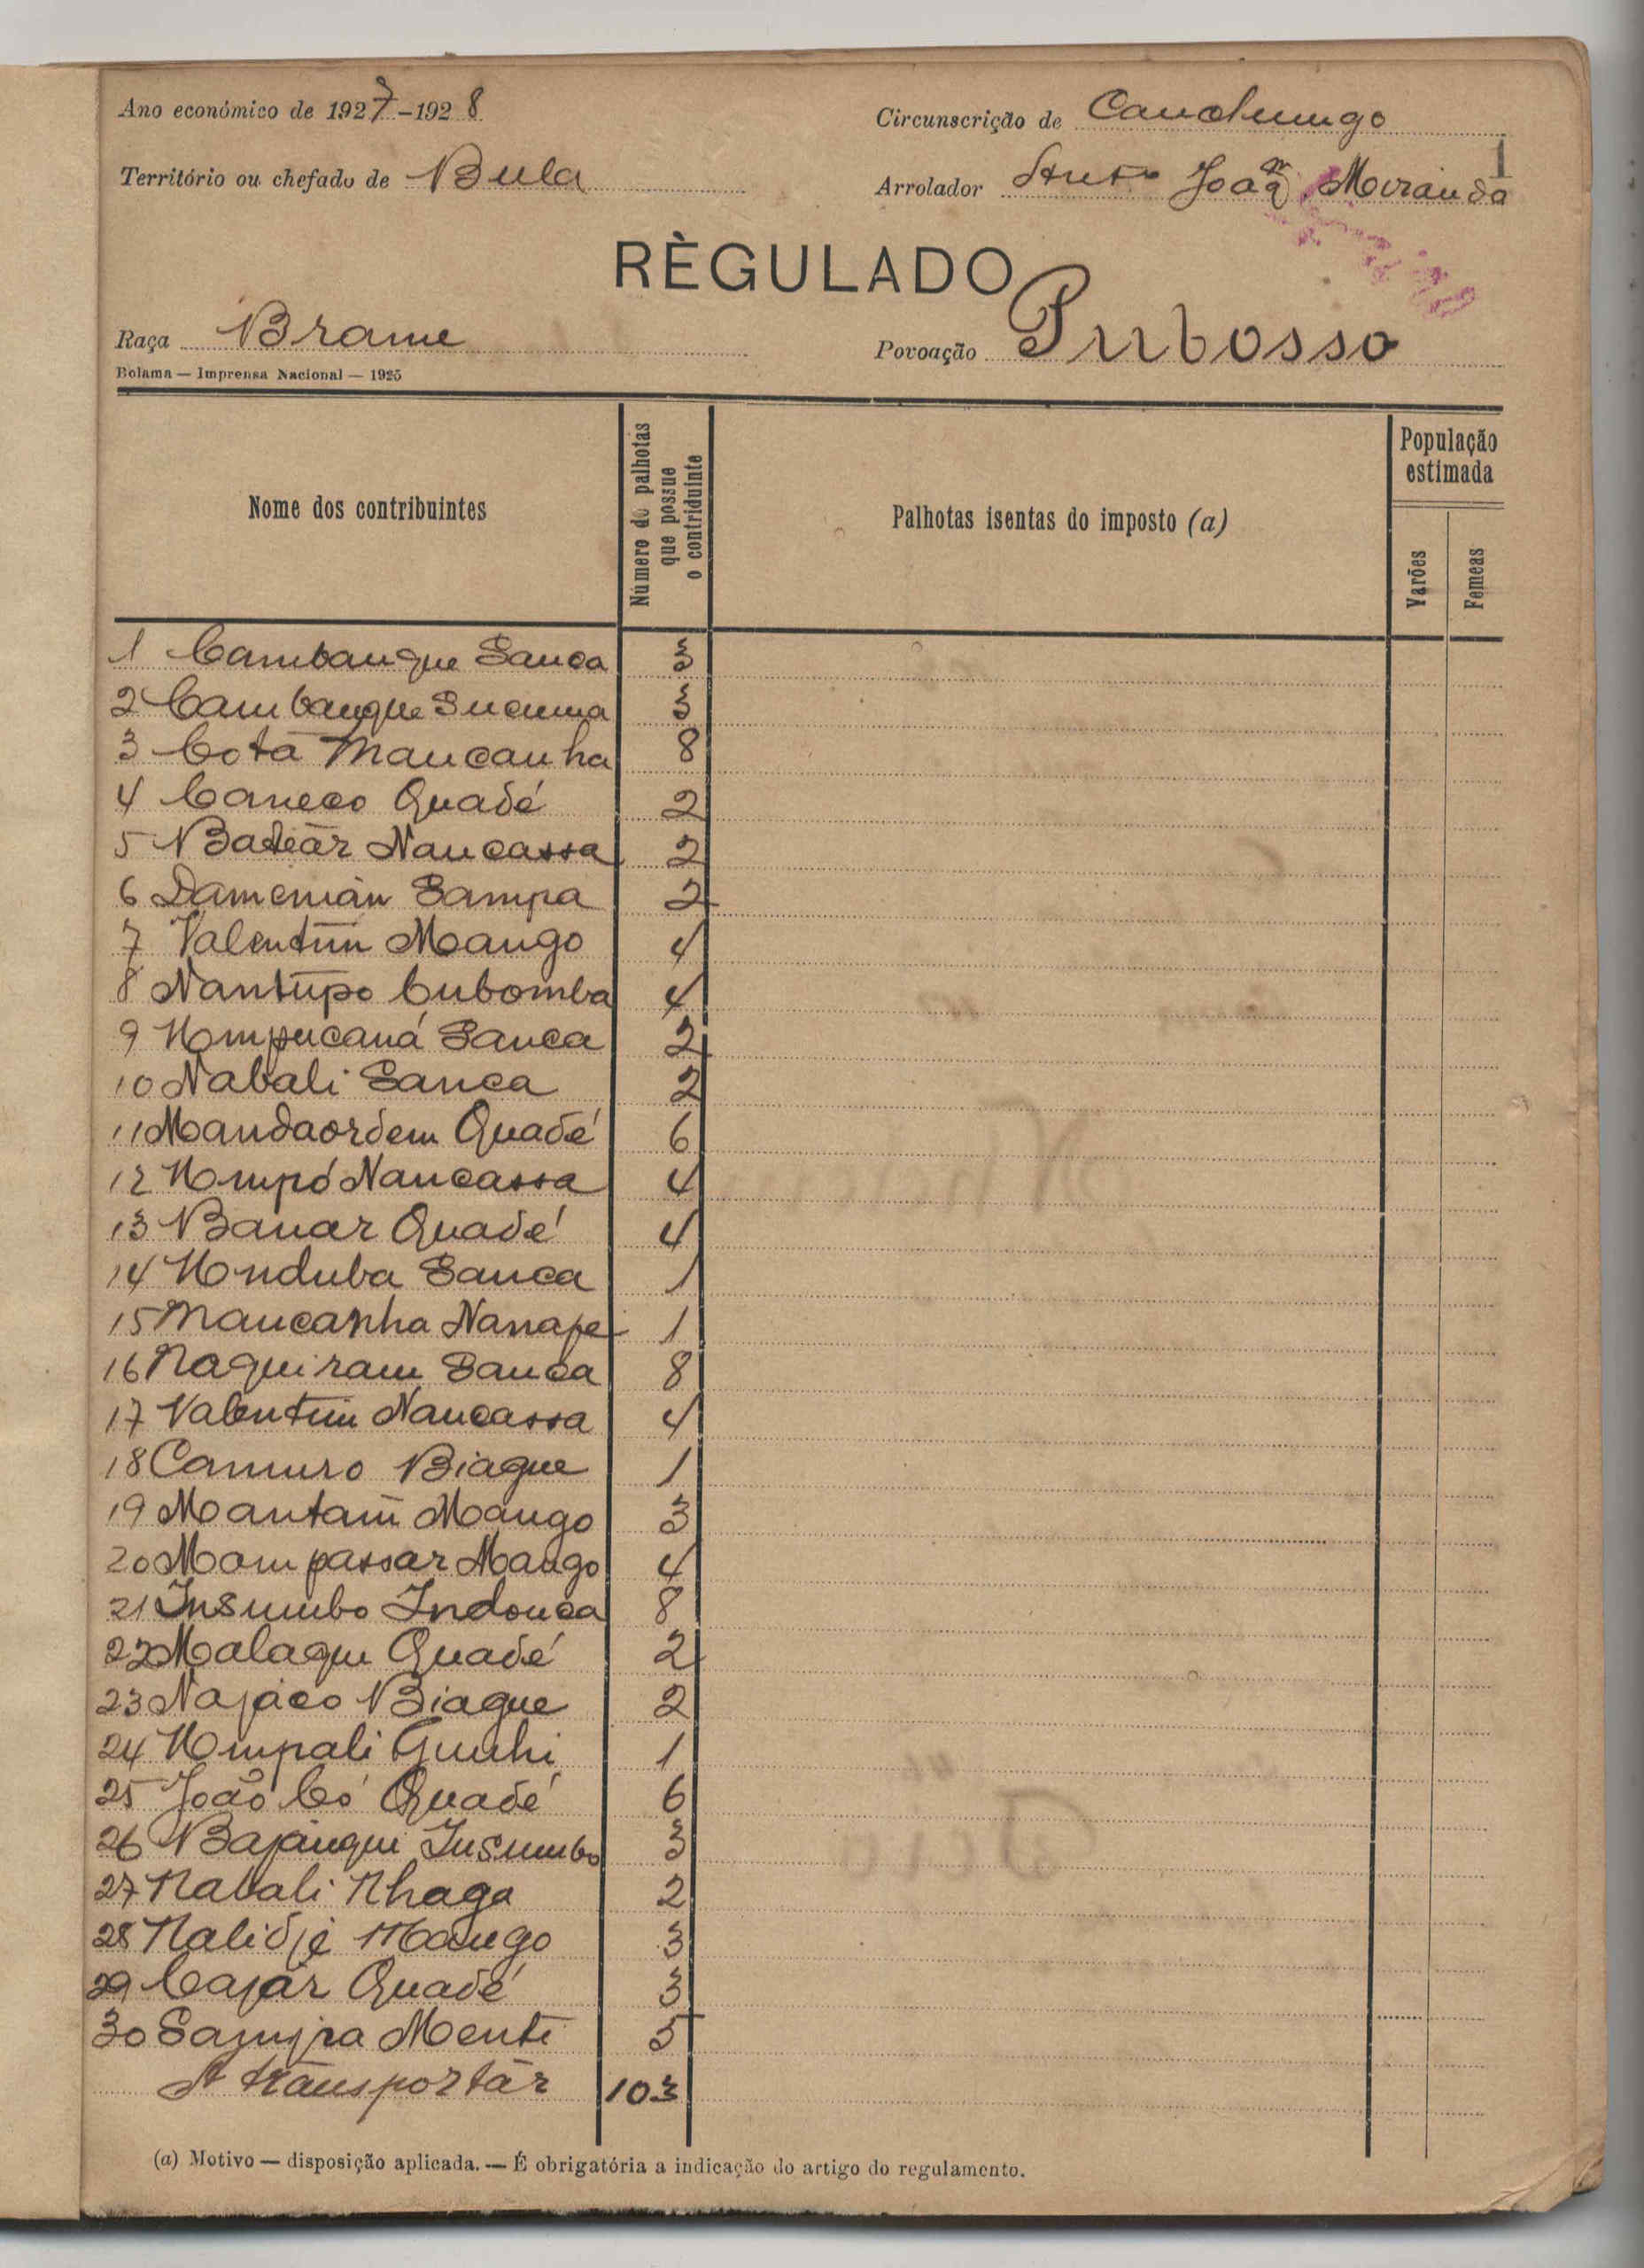 Ano económico de 1927-1928
Circunscrição de Canchungo
1
Território ou chefado de Bula
Arrolador João Miranda
RÈGULADO
Raça Brame
Povoação Pubosso
Bolama — Imprensa Nacional — 1925
Nome dos contribuintes
Número de palhotas que possue o contriduinte
Palhotas isentas do imposto (a)
População estimada
Varões
Femeas
1 Cambanque Sanca 3
2 Cambanque Sucuma 3
3 Cotà Mancanha 8
4 Caneco Quadé 2
5 Batear Nancassa 2
6 Damenian Sampa 2
7 Valentim Mango 4
8 Nantupo Cubomba 4
9 Umpucaná Sanca 2
10 Nabali Sanca 2
11 Mandaordem Quadé 6
12 Umpó Nancassa 4
13 Banar Quadé 4
14 Unduba Sanca 1
15 Mancanha Nanafe 1
16 Naquiram Sanca 8
17 Valentim Nancassa 4
18 Camuro Biague 1
19 Mantam Mango 3
20 Mompassar Mango 4
21 Insumbo Indouca 8
22 Malaque Quadé 2
23 Najaco Biague 2
24 Umpali 1
25 João Có Quadé 6
26 Bajanqui Insumbo 3
27 Nabali Nhaga 2
28 Nalidjé Mango 3
29 Cajár Quadé 3
30 Sampa Menti 5
A transportar 103
(a) Motivo — disposição aplicada. — É obrigatória a indicação do artigo do regulamento.